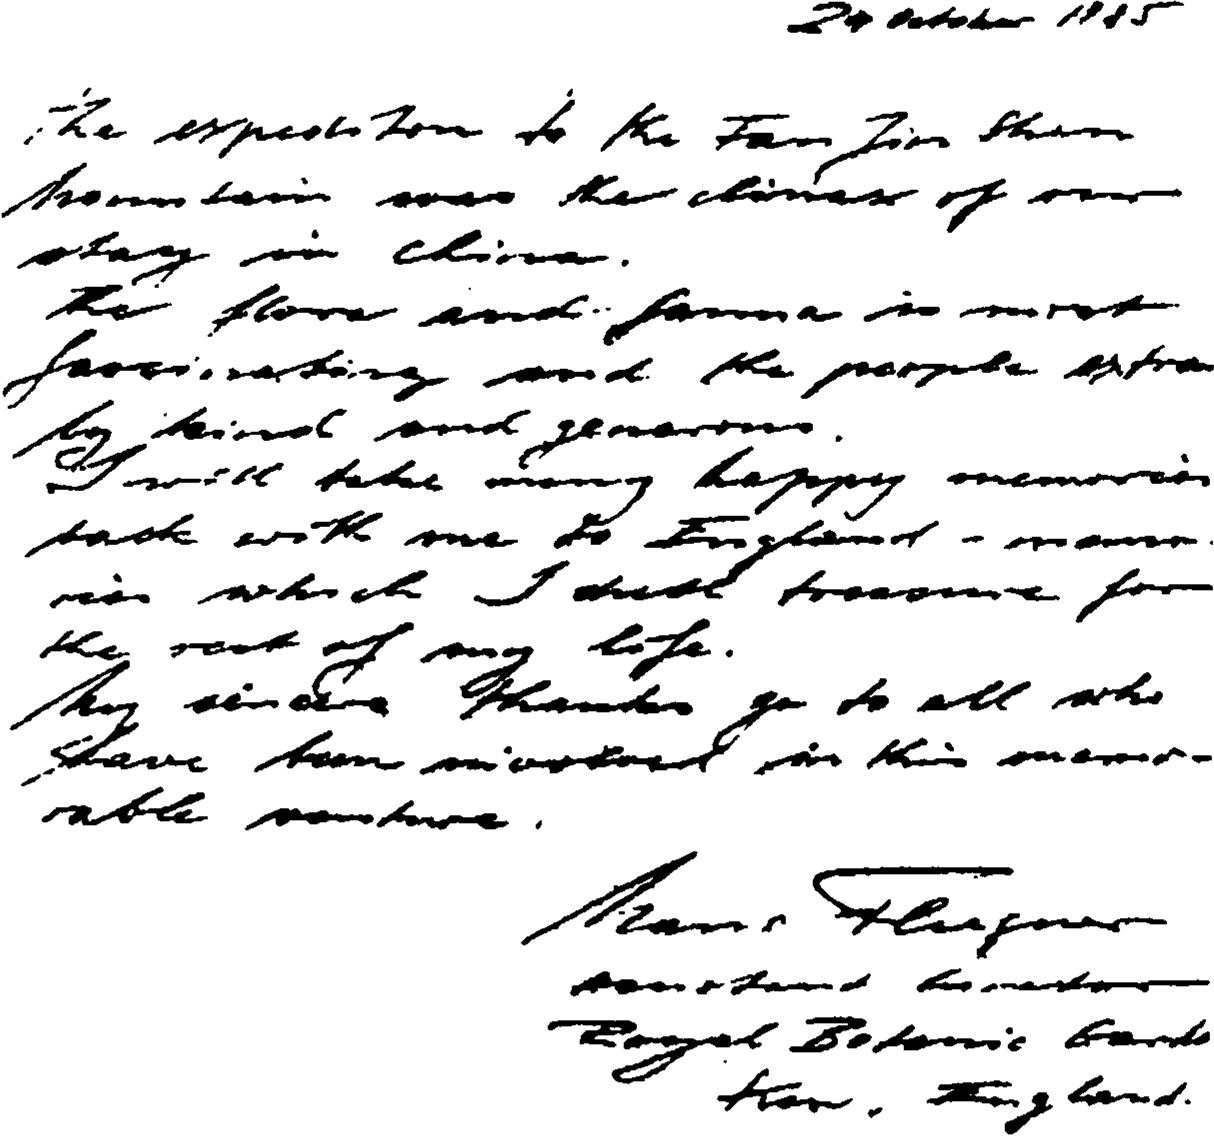 October 1985
The expedition to the Fan Jin Shan
Mountain was the climax of our
stay in China.
The flora and fauna is most
fascinating and the people extra
by kind and generous.
I will take many happy memories
back with me to England - memo
ries which I shall treasure for
the rest of my life.
My sincere thanks go to all who
have been involved in this memo-
rable venture.
Hans Fliegner
assistant curator
Royal Botanic Gards
Kew, England.